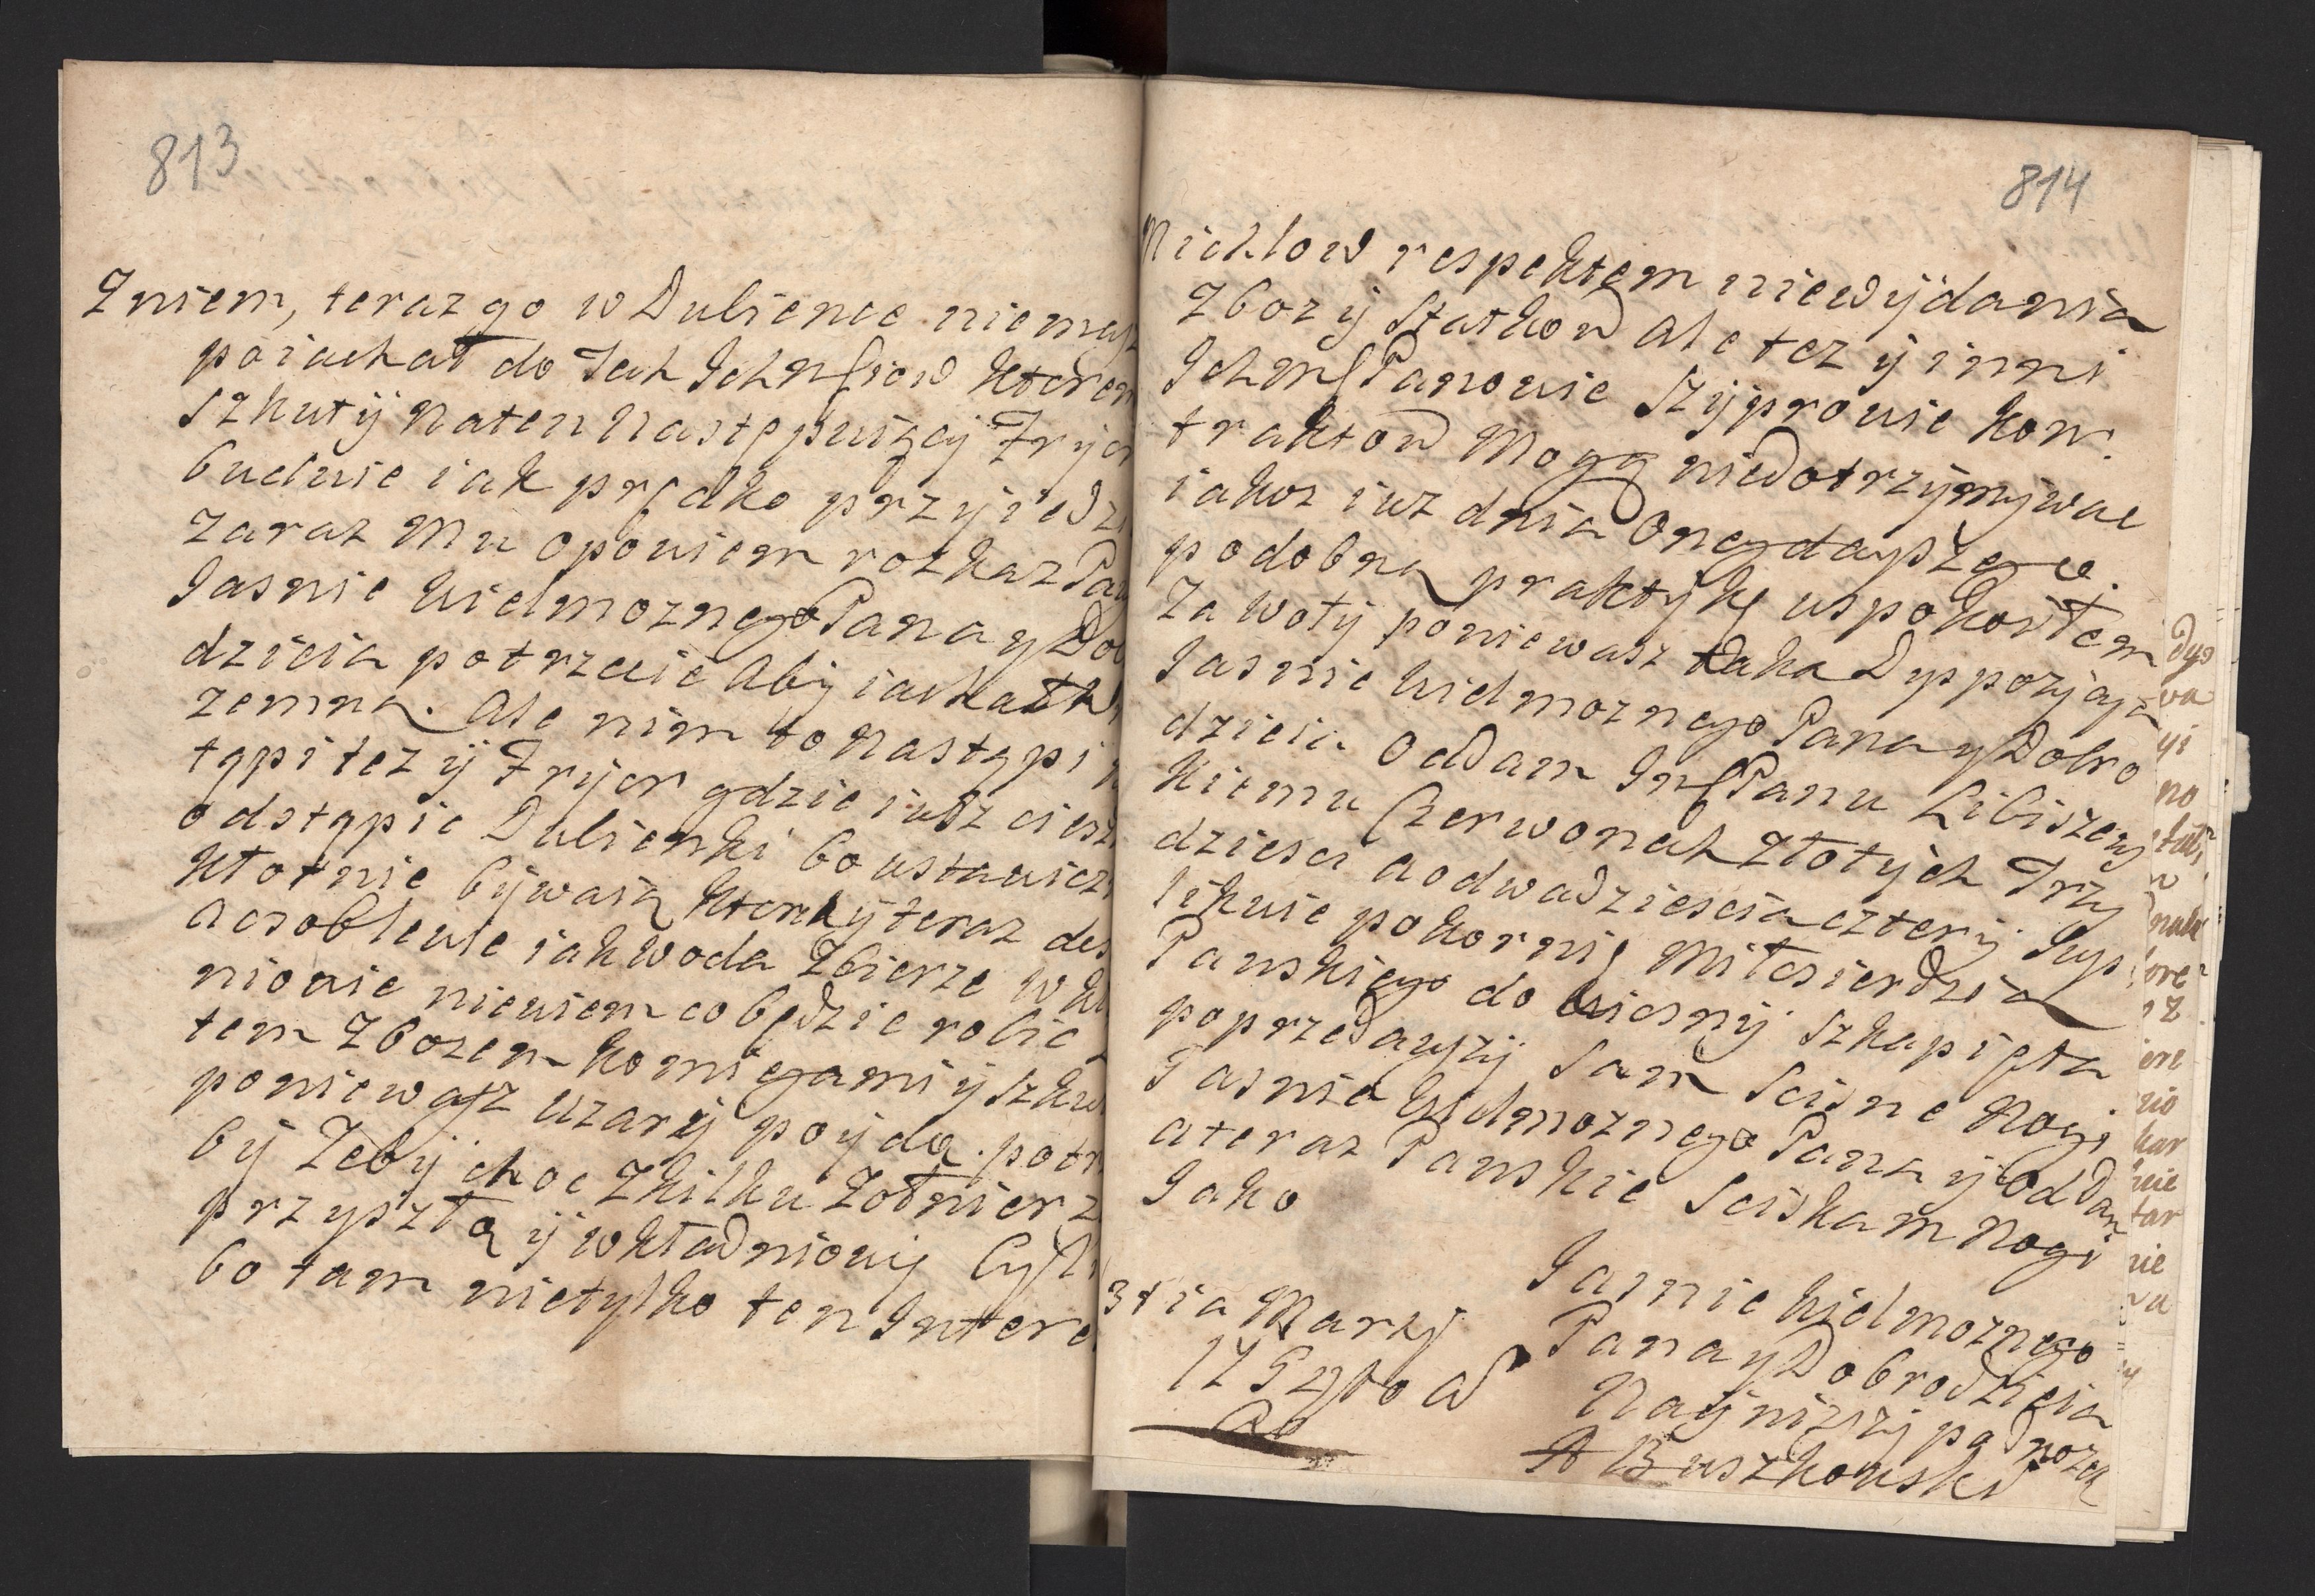 813
Zniem, teraz go w Dubience niemasz
poiachał do Jch Jchmsciow ktorem
Szkuty naten następuiący Fryor
buduie iak prędko przyiedzi
zaraz Mu opowiem rozkaz Pan
Jasnie Wielmoznego Pana y Dob
dzieia potrzeie Aby iachał
zemną. Ale nim to nastąpi n
tąpi tez y Fryor gdzie iusz ciesz
odstąpic Dubienki bo ustawicz
kłotnie bywaią ktory teraz des
Aosobleuie iak woda Zbierze w kł
niowie niewiem co będzie robic z
tem Zbozem komięgami y Szku
poniewasz uzary poyda. potr
by Zeby choc Zkilku Zołnierz
przyszło y wkładniowy
bo tam nietylko ten Jntere
814
Michlow respektem niewydania
Zboz y Statkow Ale tez y inni
Jchms Panowie Szyprowie kon
traktow Mogą niedotrzymywac
iakoz iuz dnia Onegdayszego
podobną praktykę uspokoiłem
Zawoty poniewasz taka Dyppozycya
Jasnie Wielmoznego Pana y Dobro
dzieia Oddam Jms Panu Libiszews
kiemu Czerwonch Złotych Trzy
dziesci Aodwadziescia cztery Sup
likuie pokornie Miłosierdzia
Panskiego do Wiosny. Szkapięta
poprzedawszy Sam Scisne Nogi
Jasnie Wielmoznego Pana y oddam
Ateraz Panskie Sciskam Nogi
Jako
Jasnie Wielmoznego
Pana y Dobrodzieia
Nayniszy podnozek
A Buszkowski
3tia Marty